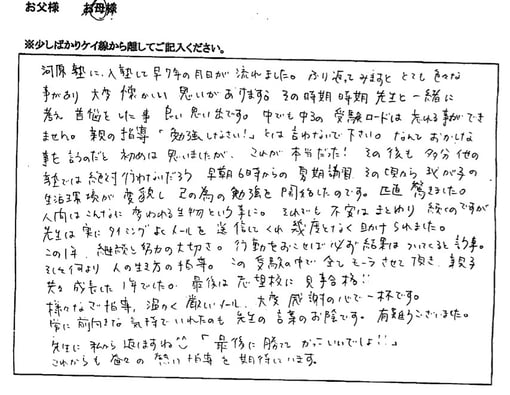 お父様 お母様
※少しばかりケイ線から離してご記入ください。
河原塾に入塾して早7年の月日が流れました。ふり返ってみますと とても色々な
事があり 大変懐かしい思いがありますね その時期時期 先生と一緒に
考え 苦悩をした事 良い思い出です。中でも中3の受験ロードは忘れる事ができ
ません。親の指導「勉強しなさい!」とは言わないで下さい。なんておかしな
事を言うのだと 初めは思いましたが、これが本当だった! その後も 多分 他の
塾では絶対行わないだろう 早朝6時からの夏期講習 その頃から 我が子の
生活環境が変貌し 己の為の勉強を開始したのです。正直驚きました。
人間はこんなに変われる生物という事に。それでも不安はまとわり続くのですが
先生は実にタイミングよくメールを送信してくれ 幾度となく助けられました。
この1年、継続と努力の大切さ。行動をおこせば必ず結果はついてくると言う事。
そして何より 人の生き方の指導。この受験の中で全てモーラさせて頂き、親子
共々成長した1年でした。最後は志望校に見事合格!!
様々なご指導、温かく厳しいメール、大変感謝の心で一杯です。
常に前向きな気持でいれたのも先生の言葉のお陰です。有難うございました。
先生に私から返しますね「最後に勝って かっこいいでしょ!!」
これからも益々の熱い指導を期待しています。